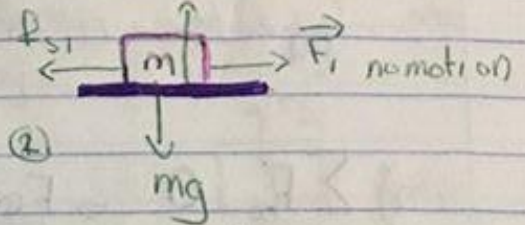 fs1 m F1 no motion
②
mg